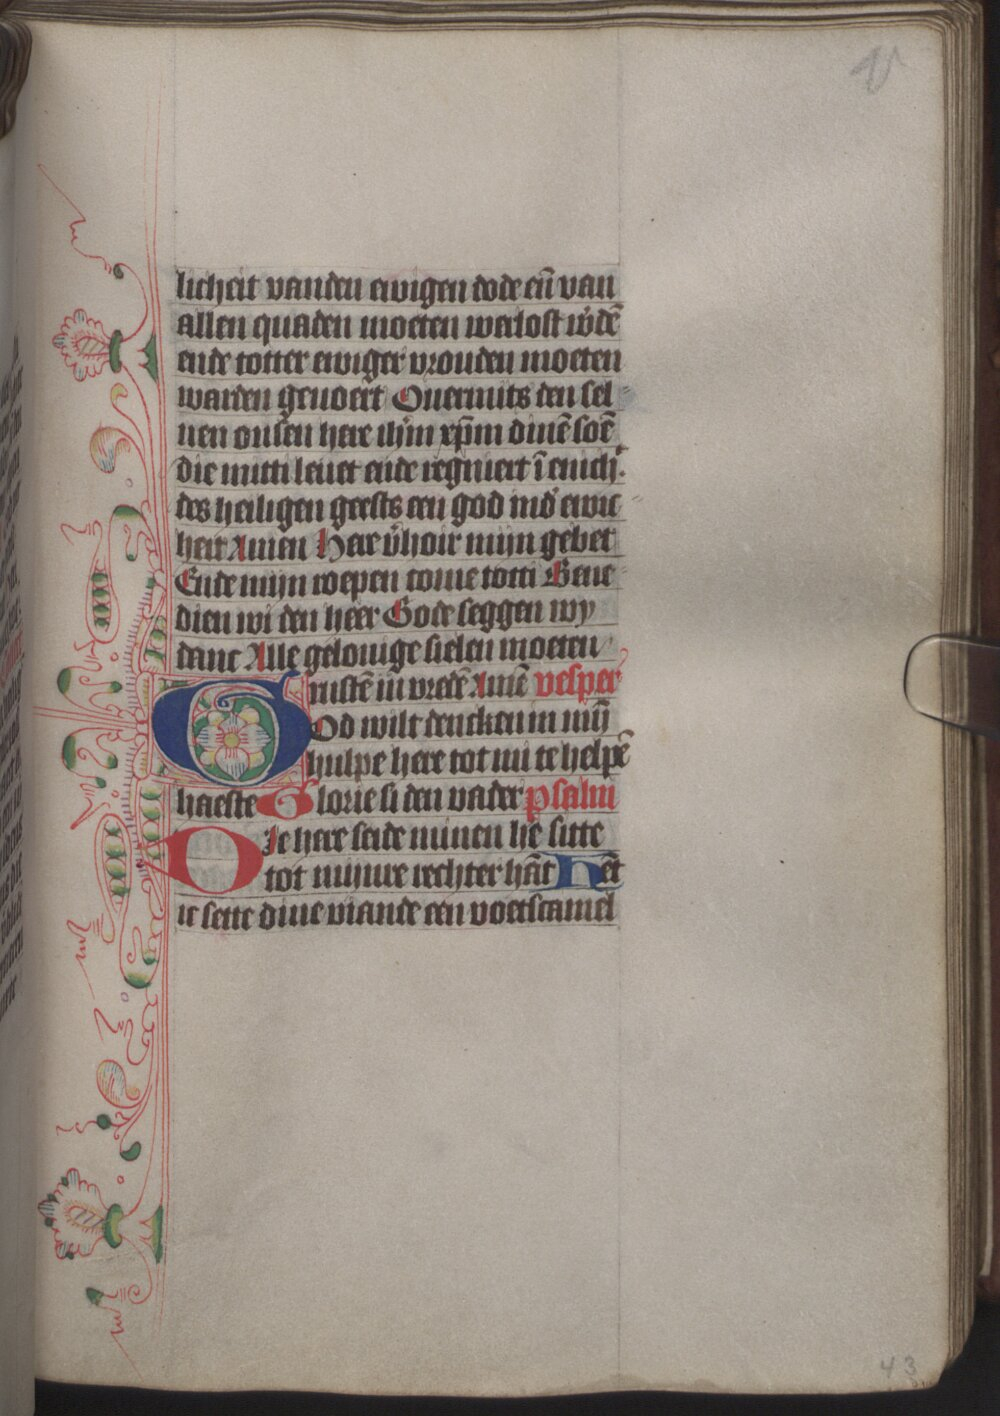 licheit vanden ewigen dode eñ van
allen quaden moeten werlost wdē
ende totter ewiger vrouden moeten
warden geuoert Ouermits den sel
uen onsen here ihm xpm dinē soē
die mitti leuet ende regniert ī enich
des heiligen geests een god
heit Amen Here vhoir mijn gebet
Ende mijn roepen come totti Bene
dien wi den heer Gode seggen wy
danc Alle gelouige sielen moeten
rustē in vredē Amē vesper
God wilt dencken in mÿ
hulpe here tot mi te helpē
haeste Glorie si den vader psalm
DIe here seide minen hē sitte
tot mijnre rechter hāt Hēt
ic sette dine viande een voetscamel
43